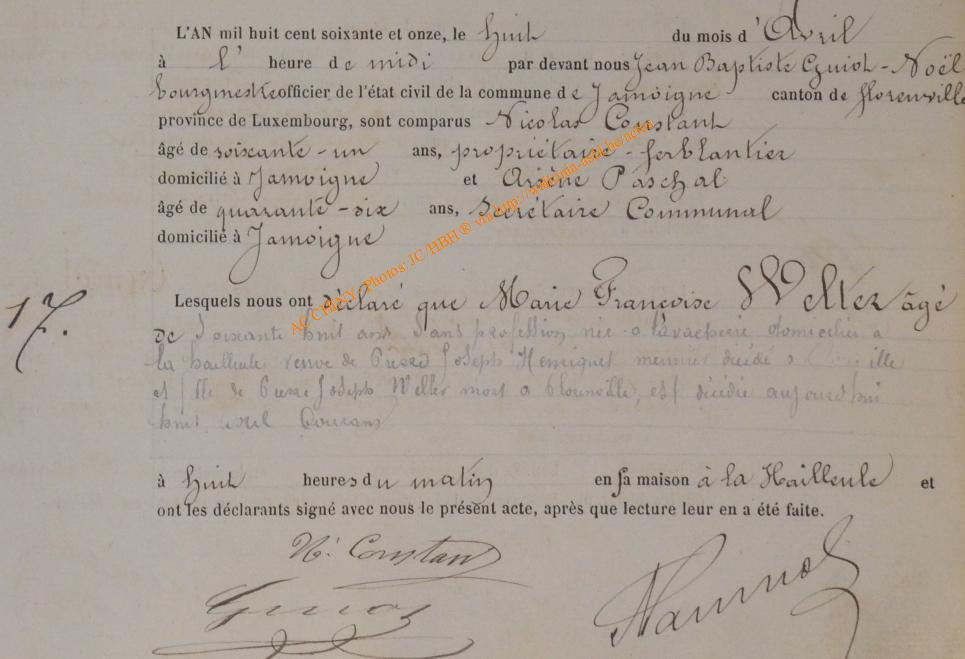 L'AN mil huit cent soixante et onze, le huit du mois d'Avril
à l' heure de midi par devant nous Jean Baptiste Guiot-Noël
bourgmestre officier de l'état civil de la commune de Jamoigne canton de florenville
province de Luxembourg, sont comparus Nicolas Constant
âgé de soixante-un ans, propriétaire-ferblantier
domicilié à Jamoigne et Arsène Paschal
âgé de quarante-six ans, Secrétaire Communal
domicilié à Jamoigne
17. Lesquels nous ont déclaré que Marie Françoise Welter âgé
de Soixante huit ans Sans profession née a lavacherie domiciliée a
la hailleule veuve de Pierre Joseph Henriquet meunier décédé
et fille de Pierre Joseph Welter mort a, est décédée aujourd'hui
huit avril Courant
à huit heures du matin en sa maison à la Hailleule et
ont les déclarants signé avec nous le présent acte, après que lecture leur en a été faite.
N. Constant
AC CHINY - Photos: JC HBH ® via